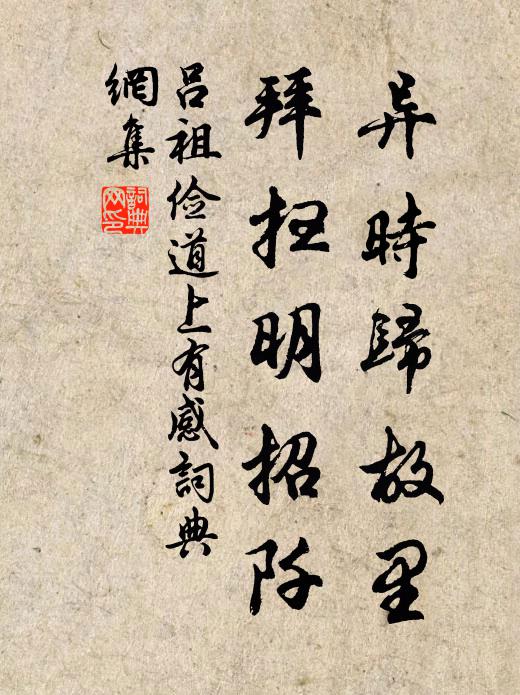 异時歸故里
拜扫明招阡
吕祖俭道上有感詞典
網集
詞典網印